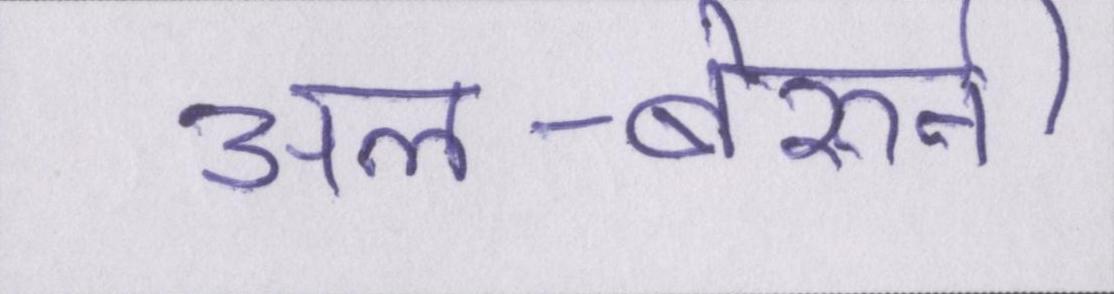 अल-बेरुनी